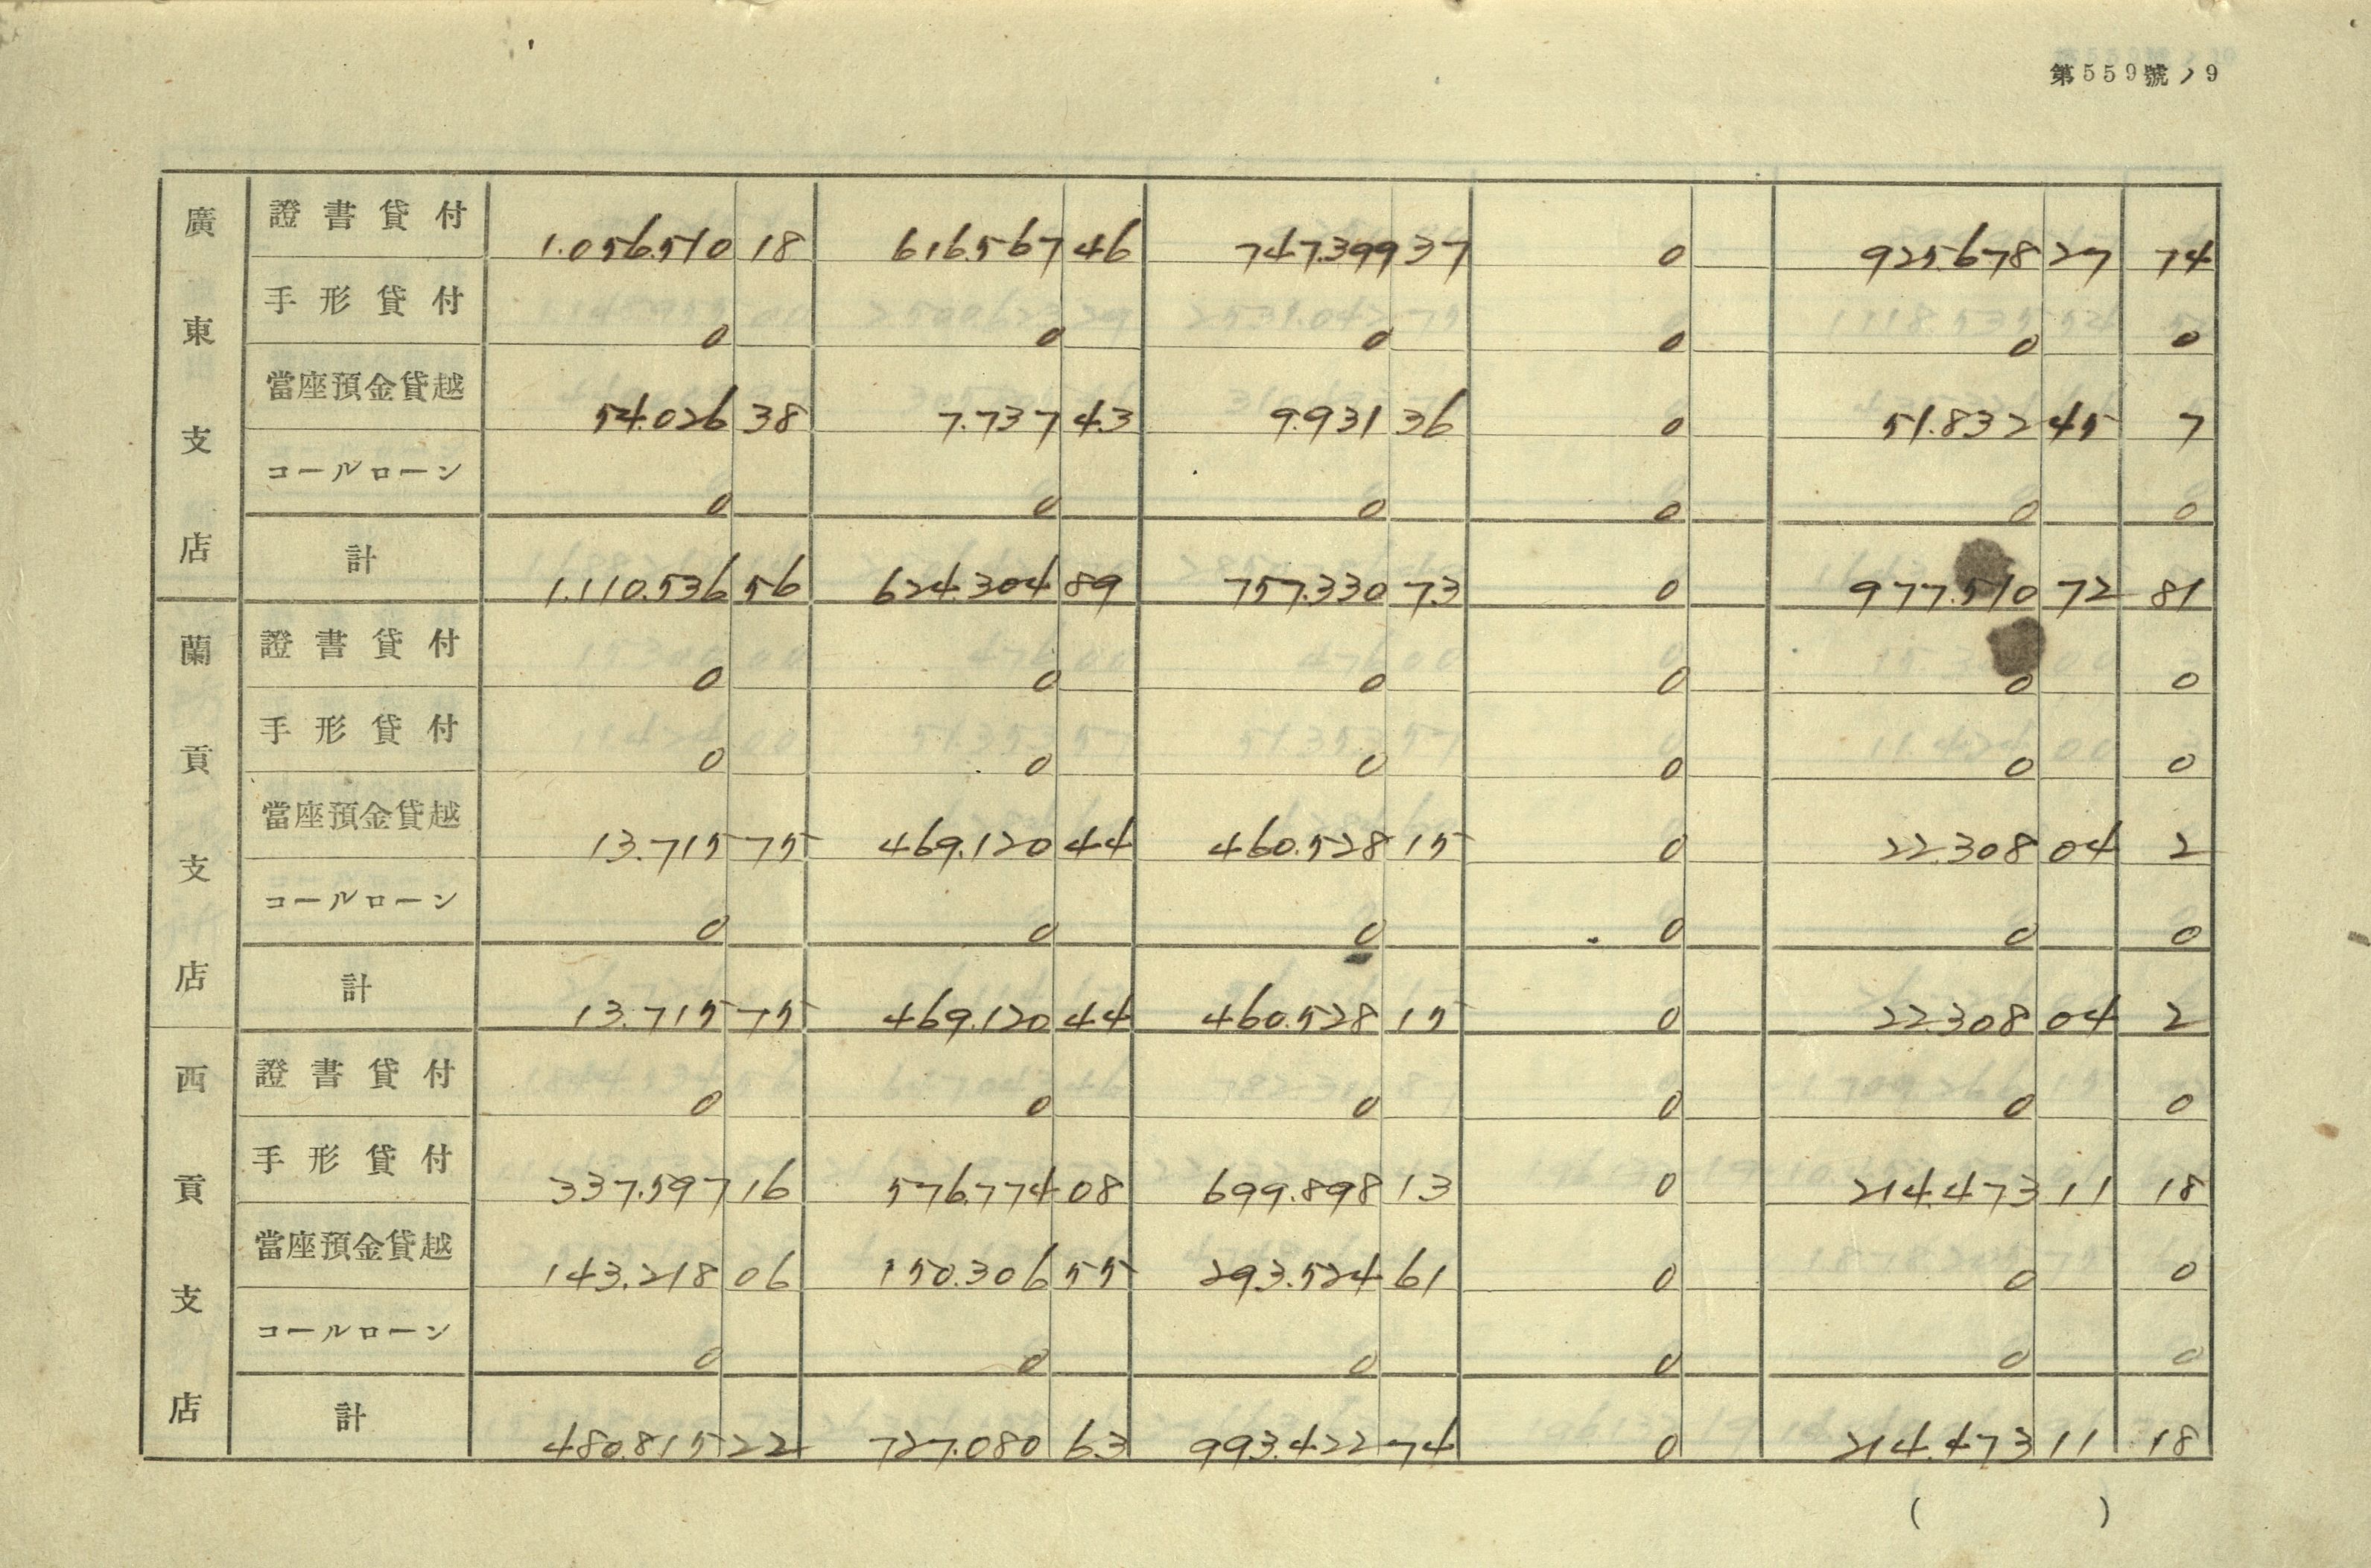 第559號ノ9
廣東支店
證書貸付 1.056.510 18 616.567 46 747.399 37 0 925.678 27 74
手形貸付 0 0 0 0 0 0
當座預金貸越 54.026 38 7.737 43 9.931 36 0 51.832 45 7
コールローン 0 0 0 0 0 0
計 1.110.536 56 624.304 89 757.330 73 0 977.510 72 81
蘭貢支店
證書貸付 0 0 0 0 0 0
手形貸付 0 0 0 0 0 0
當座預金貸越 13.715 75 469.120 44 460.528 15 0 22.308 04 2
コールローン 0 0 0 0 0 0
計 13.715 75 469.120 44 460.528 15 0 22.308 04 2
西貢支店
證書貸付 0 0 0 0 0 0
手形貸付 337.597 16 576.774 08 699.898 13 0 214.473 11 18
當座預金貸越 143.218 06 150.306 55 293.524 61 0 0 0
コールローン 0 0 0 0 0 0
計 480.815 22 727.080 63 993.422 74 0 214.473 11 18
( )